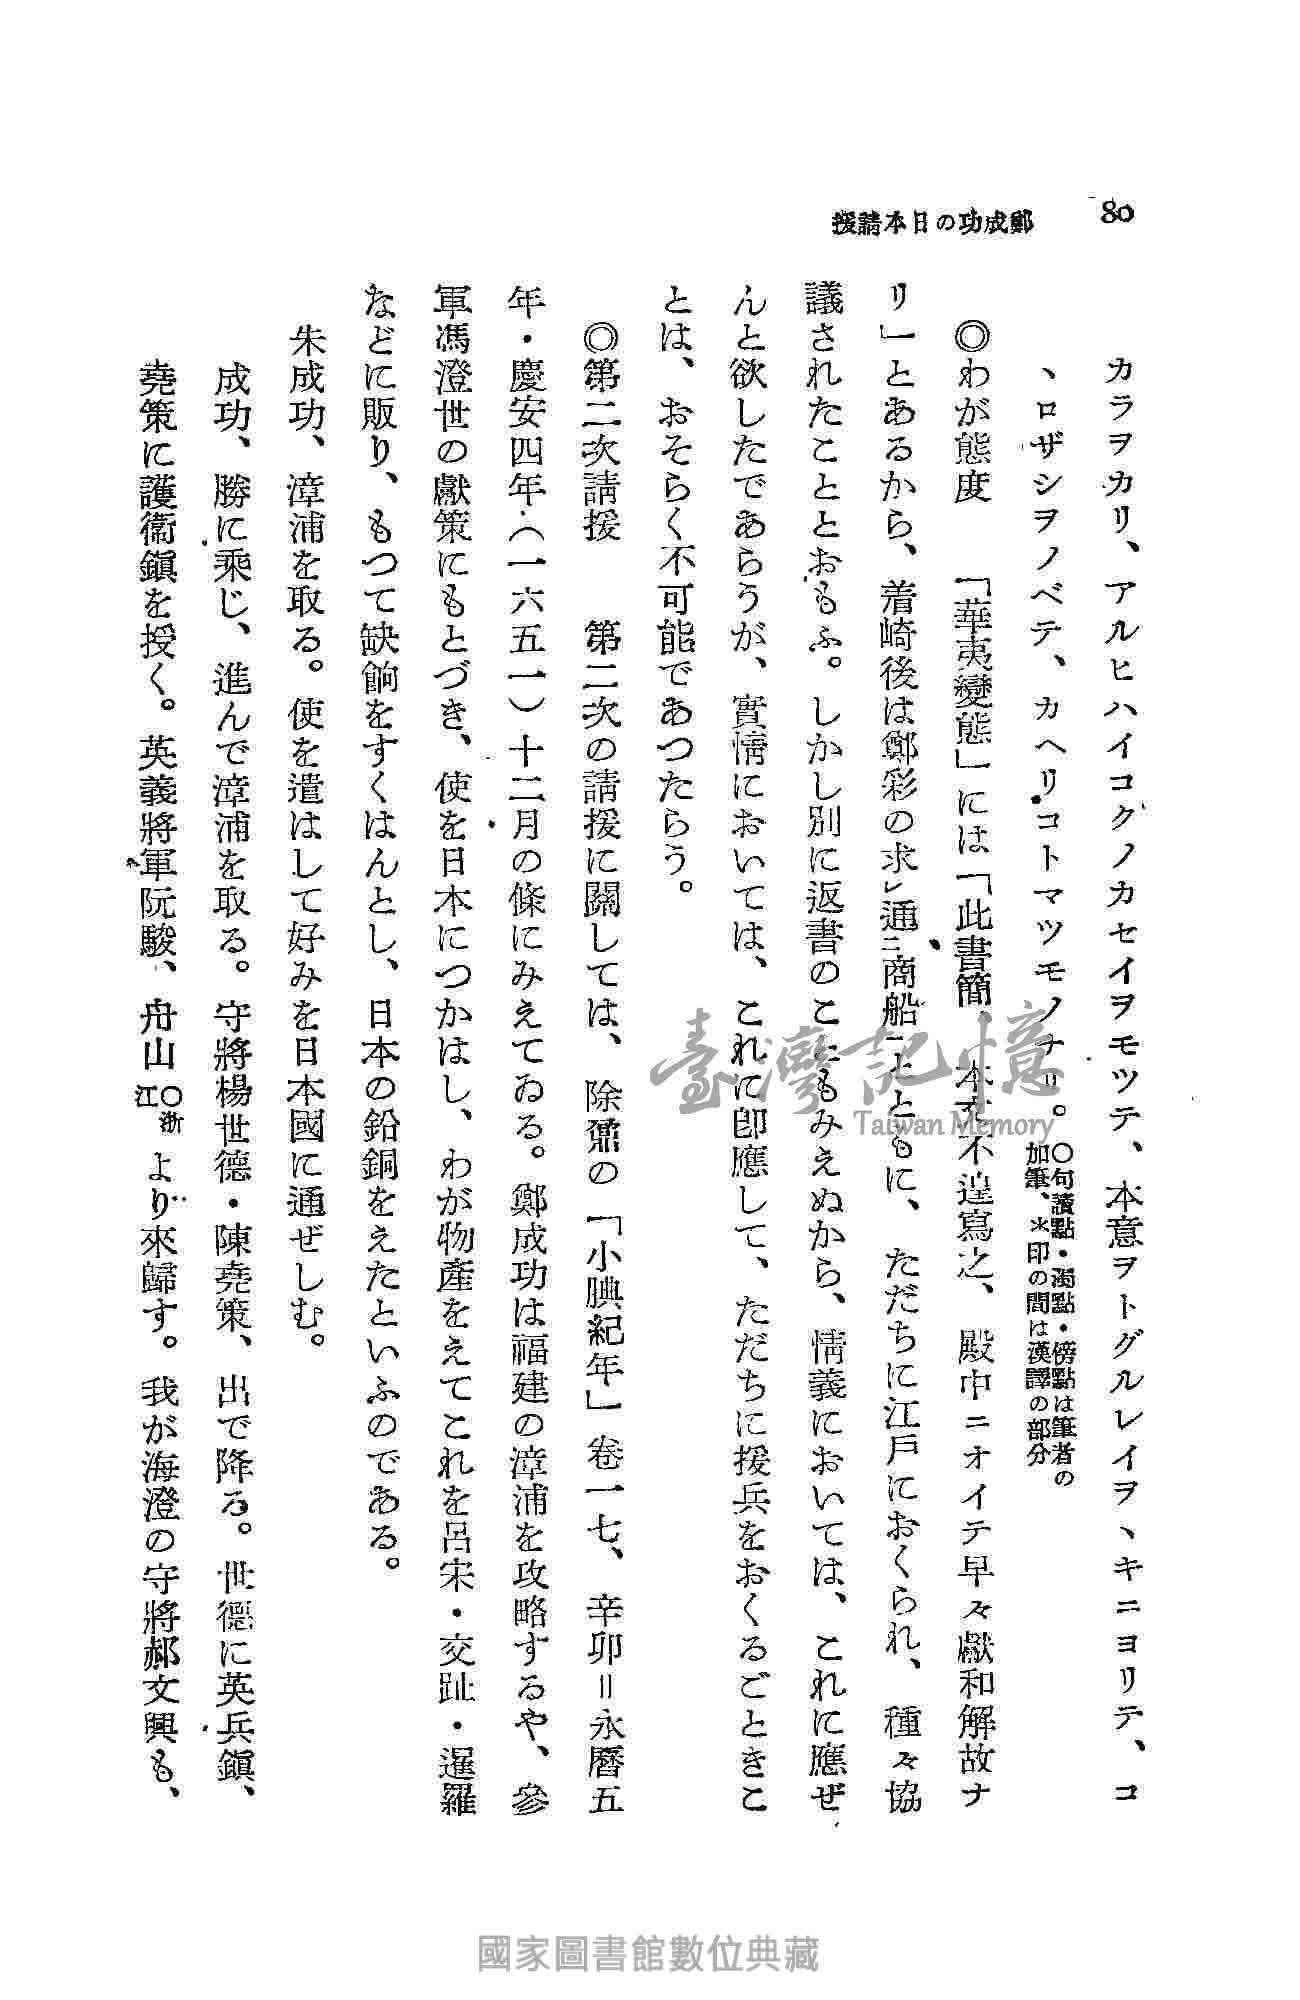 80
鄭成功の日本請援
カラヲカリ、アルヒハイコクノカセイヲモツテ、本意ヲトグルレイヲヽキニヨリテ、コ
ヽロザシヲノベテ、カヘリコトマツモノナリ。
〇句讀點・濁點・傍點は筆者の
加筆、＊印の間は漢譯の部分
◎わが態度　「華夷變態」には「此書簡、本文不遑寫之、殿中ニオイテ早々獻和解故ナ
リ」とあるから、着崎後は鄭彩の求レ通二商船一とともに、ただちに江戸におくられ、種々協
議されたこととおもふ。しかし別に返書のこともみえぬから、情義においては、これに應ぜ
んと欲したであらうが、實情においては、これに卽應して、ただちに援兵をおくるごときこ
とは、おそらく不可能であつたらう。
◎第二次請援　第二次の請援に關しては、徐鼒の「小腆紀年」卷一七、辛卯＝永曆五
年・慶安四年（一六五一）十二月の條にみえてゐる。鄭成功は福建の漳浦を攻略するや、參
軍馮澄世の獻策にもとづき、使を日本につかはし、わが物產をえてこれを呂宋・交趾・暹羅
などに販り、もつて缺餉をすくはんとし、日本の鉛銅をえたといふのである。
朱成功、漳浦を取る。使を遣はして好みを日本國に通ぜしむ。
成功、勝に乘じ、進んで漳浦を取る。守將楊世德・陳堯策、出で降る。世德に英兵鎭、
堯策に護衞鎭を授く。英義將軍阮駿、舟山〇浙江より來歸す。我が海澄の守將郝文興も、
臺灣記憶
Taiwan Memory
國家圖書館數位典藏